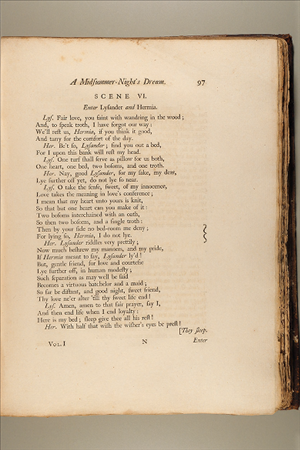 A Midsummer-Night's Dream. 97
SCENE VI.
Enter Lysander and Hermia.
Lys. Fair love, you faint with wandring in the wood;
And, to speak troth, I have forgot our way:
We'll rest us, Hermia, if you think it good,
And tarry for the comfort of the day.
Her. Be't so, Lysander; find you out a bed,
For I upon this bank will rest my head.
Lys. One turf shall serve as pillow for us both,
One heart, one bed, two bosoms, and one troth.
Her. Nay, good Lysander, for my sake, my dear,
Lye further off yet, do not lye so near.
Lys. O take the sense, sweet, of my innocence,
Love takes the meaning in love's conference;
I mean that my heart unto yours is knit,
So that but one heart can you make of it:
Two bosoms interchained with an oath,
So then two bosoms, and a single troth:
Then by your side no bed-room me deny;
For lying so, Hermia, I do not lye.
Her. Lysander riddles very prettily;
Now much beshrew my manners, and my pride,
If Hermia meant to say, Lysander ly'd!
But, gentle friend, for love and courtesie
Lye further off, in human modesty;
Such separation as may well be said
Becomes a virtuous batchelor and a maid;
So far be distant, and good night, sweet friend,
Thy love ne'er alter 'till thy sweet life end!
Lys. Amen, amen to that fair prayer, say I,
And then end life when I end loyalty:
Here is my bed; sleep give thee all his rest!
Her. With half that wish the wisher's eyes be prest!
[They sleep.
VOL. I N Enter